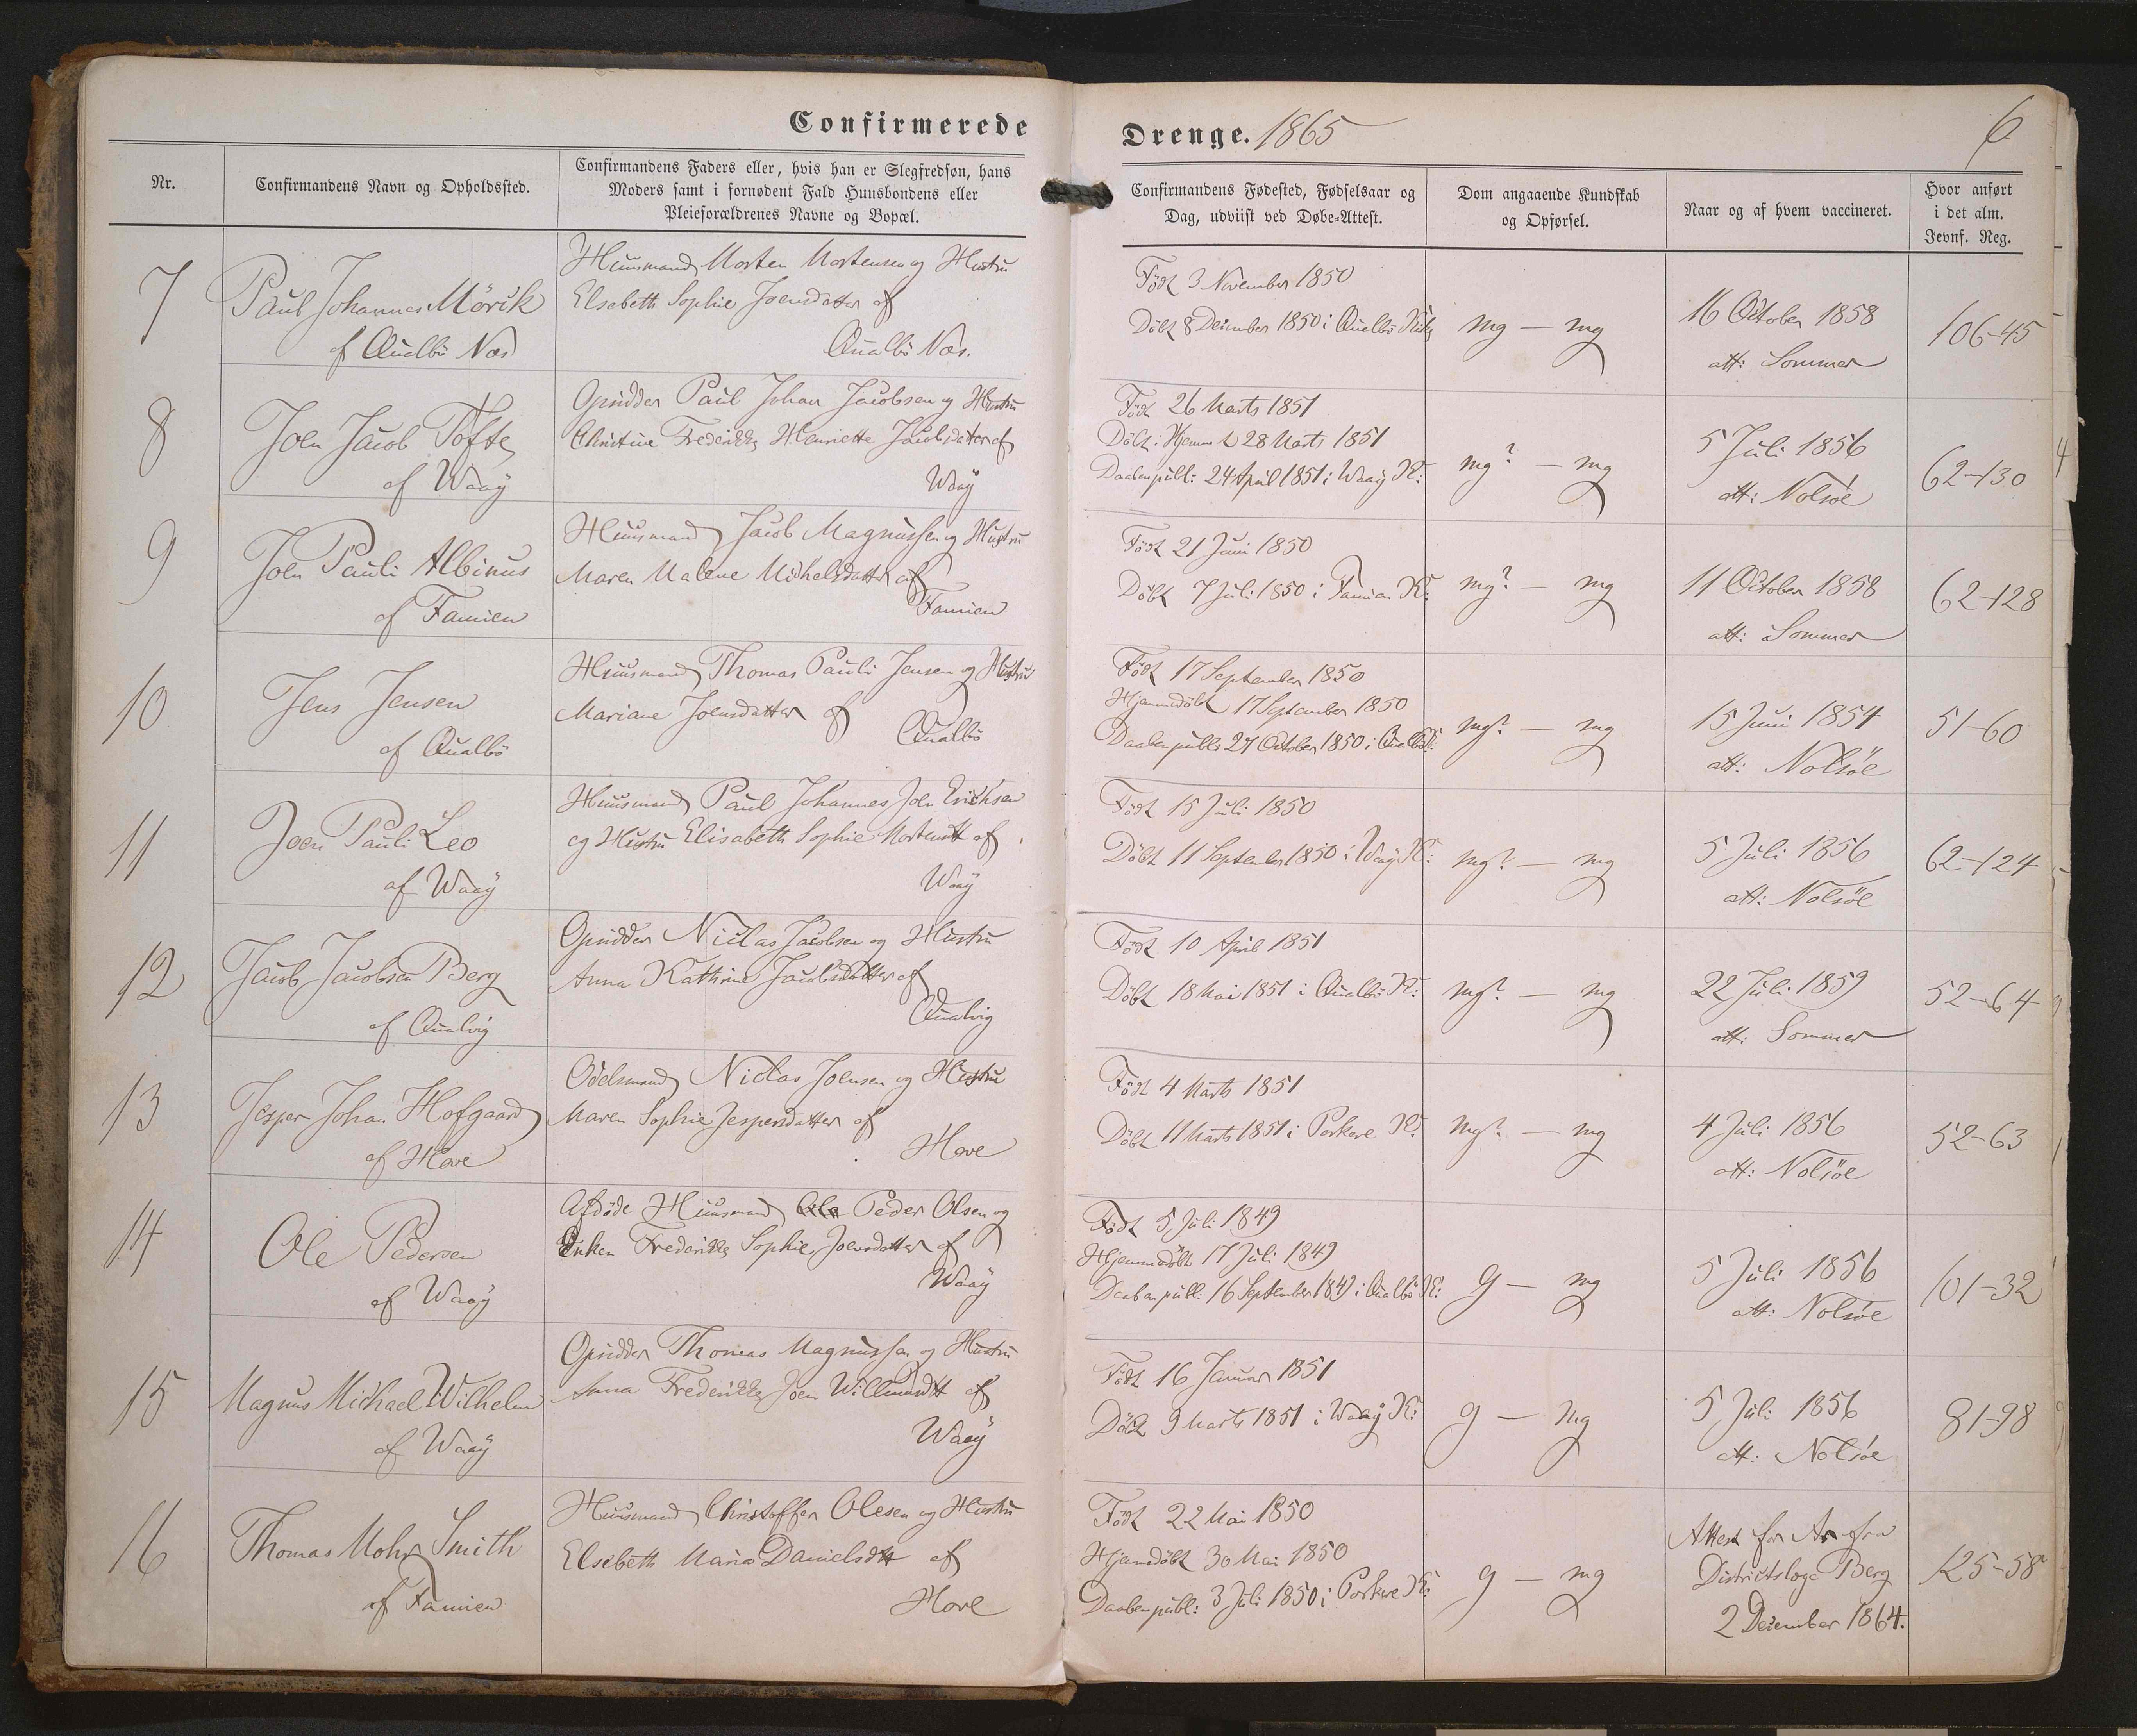 Confirmerede
Drenge. 1865
6
Nr.
Confirmandens Navn og Opholdssted.
Confirmandens Faders eller, hvis han er Slegfredsøn, hans
Moders samt i fornødent Fald Huusbondens eller
Pleieforældrenes Navne og Bopæl.
Confirmandens Fødested, Fødselsaar og
Dag, udviist ved Døbe-Attest.
Dom angaaende Kundskab
og Opførsel.
Naar og af hvem vaccineret.
Hvor anført
i det alm.
Jevnf. Reg.
7
Paul Johannes Mörik
af Qualbö Næs
Huusmand Morten Mortensen og Hustru
Elsebeth Sophie Joensdatter af
Qualbö Næs.
Födt 3 November 1850
Döbt 8 December 1850 i Qualbö Kirke
mg — mg
16 October 1858
att: Sommer
106-45
8
Joen Jacob Tofte
af Waaÿ
Opsidder Paul Johan Jacobsen og Hustru
Christine Frederikke Henriette Jacobsdatter af
Waaÿ
Födt 26 Marts 1851
Döbt i Hjemmet 28 Marts 1851
Daaben publ: 24 April 1851 i Waaÿ K:
mg? — mg
5 Juli 1856
att: Nolsöe
62-130
9
Joen Pauli Albinus
af Famien
Huusmand Jacob Magnussen og Hustru
Maren Malene Michelsdatter af
Famien
Födt 21 Juni 1850
Döbt 7 Juli 1850 i Famien K:
mg? — mg
11 October 1858
att: Sommer
62-128
10
Jens Jensen
af Qualbö
Huusmand Thomas Pauli Jensen og Hustru
Mariane Joensdatter af
Qualbö
Födt 17 September 1850
Hjemmedöbt 17 September 1850
Daaben publ: 27 October 1850 i Qualbö K:
mg? — mg
15 Juni 1854
att: Nolsöe
51-60
11
Joen Pauli Leo
af Waaÿ
Huusmand Paul Johannes Joen Erichsen
og Hustru Elisabeth Sophie Mortensdtt af
Waaÿ
Födt 15 Juli 1850
Döbt 11 September 1850 i Waaÿ K:
mg? — mg
5 Juli 1856
att: Nolsöe
62-124
12
Jacob Jacobsen Berg
af Qualvig
Opsidder Niclas Jacobsen og Hustru
Anna Kathrine Jacobsdatter af
Qualvig
Födt 10 April 1851
Döbt 18 Mai 1851 i Qualbö K:
mg? — mg
22 Juli 1859
att: Sommer
52-64
13
Jesper Johan Hofgaard
af Hove
Odelsmand Niclas Joensen og Hustru
Maren Sophie Jespersdatter af
Hove
Födt 4 Marts 1851
Döbt 11 Marts 1851 i Porkere K:
mg? — mg
4 Juli 1856
att: Nolsöe
52-63
14
Ole Pedersen
af Waaÿ
Afdöde Huusmand Ole Peder Olsen og
Enken Frederikke Sophie Joensdatter af
Waaÿ
Födt 5 Juli 1849
Hjemmedöbt 17 Juli 1849
Daaben publ: 16 September 1849 i Qualbö K:
g — mg
5 Juli 1856
att: Nolsöe
101-32
15
Magnus Michael Wilhelm
af Waaÿ
Opsidder Thomas Magnussen og Hustru
Anna Frederikke Joen Willumsdtt af
Waaÿ
Födt 16 Januar 1851
Döbt 9 Marts 1851 i Waaÿ K:
g — mg
5 Juli 1856
att: Nolsöe
81-98
16
Thomas Mohr Smith
af Famien
Huusmand Christoffer Olesen og Hustru
Elsebeth Maria Danielsdtt af
Hove
Födt 22 Mai 1850
Hjemmedöbt 30 Mai 1850
Daaben publ: 3 Juli 1850 i Porkere K:
g — mg
Attest for Ar fra
Districtslæge Berg
2 December 1864.
125-58